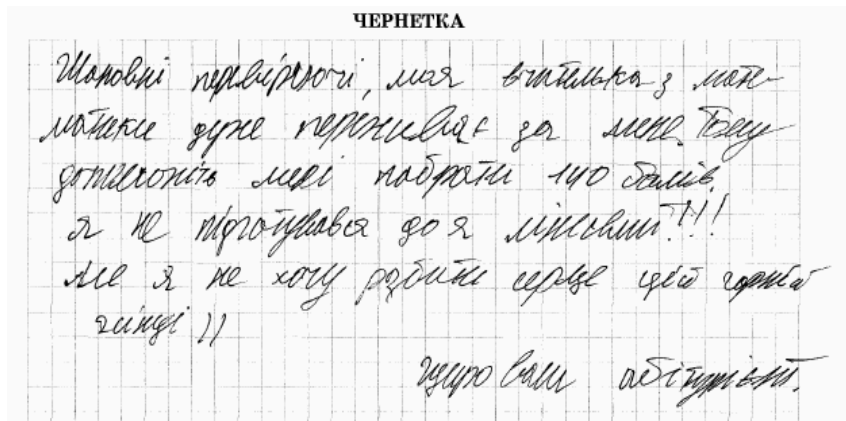 ЧЕРНЕТКА
Шановні перевіряючі, моя вчителька з мате-
матеки дуже переживає за мене. Тому
допоможіть мені набрати 140 балів.
я не підготувався до я лінивий!!!
Але я не хочу розбити серце цієї гарної
жінці ))
щиро Ваш абітурієнт.